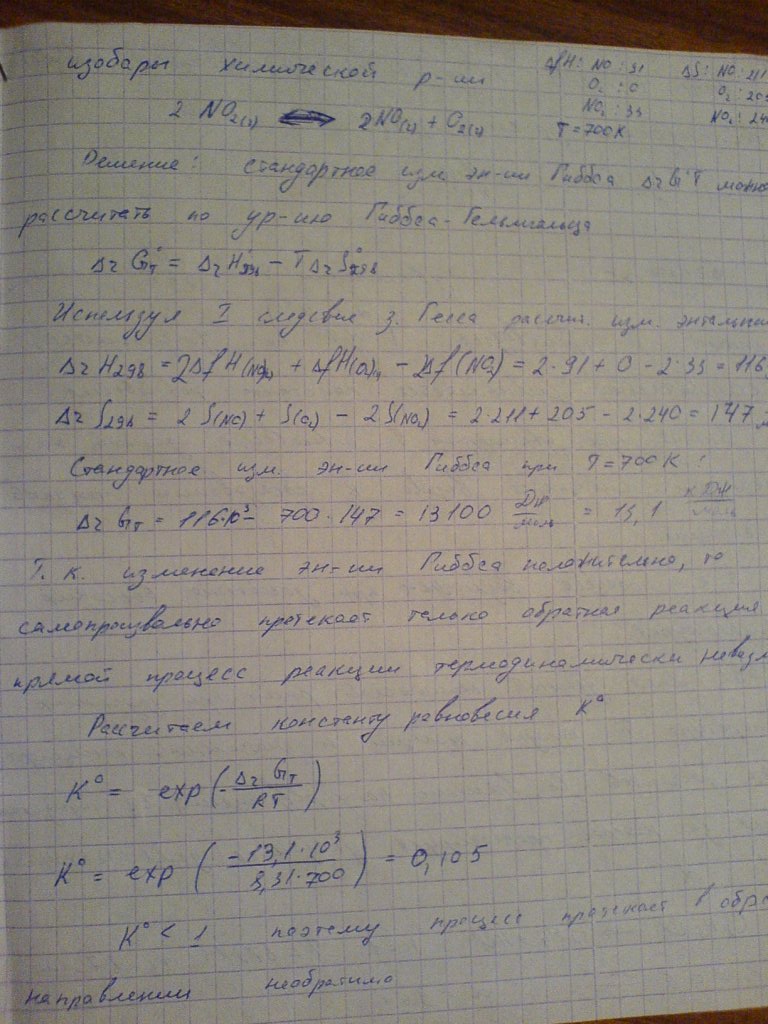 изобары химической р-ии
ΔfH: NO: 91 ΔS: NO: 211
O2: 0 O2: 205
NO2: 33 NO2: 240
2 NO2(г) ⇔ 2NO(г) + O2(г) T = 700K
Решение: стандартное изм. эн-ии Гиббса ΔrG°T можно
рассчитать по ур-ию Гиббса-Гельмгольца
ΔrG°T = ΔrH°298 - TΔrS°298
Используя I следствие з. Гесса рассчит. изм. энтальпии
ΔrH298 = 2ΔfH(NO)г + ΔfH(O2)г - 2Δf(NO2) = 2·91 + 0 - 2·33 = 116
ΔrS298 = 2S(NO) + S(O2) - 2S(NO2) = 2·211 + 205 - 2·240 = 147
Стандартное изм. эн-ии Гиббса при T = 700K:
ΔrGT = 116·10³ - 700·147 = 13100 Дж/моль = 13,1 кДж/моль
Т. к. изменение эн-ии Гиббса положительно, то
самопроизвольно протекает только обратная реакция
прямой процесс реакции термодинамически невозм
Рассчитаем константу равновесия K°
K° = exp(-ΔrGT/RT)
K° = exp(-13,1·10³/8,31·700) = 0,105
K° < 1 поэтому процесс протекает в обра
направлении необратимо